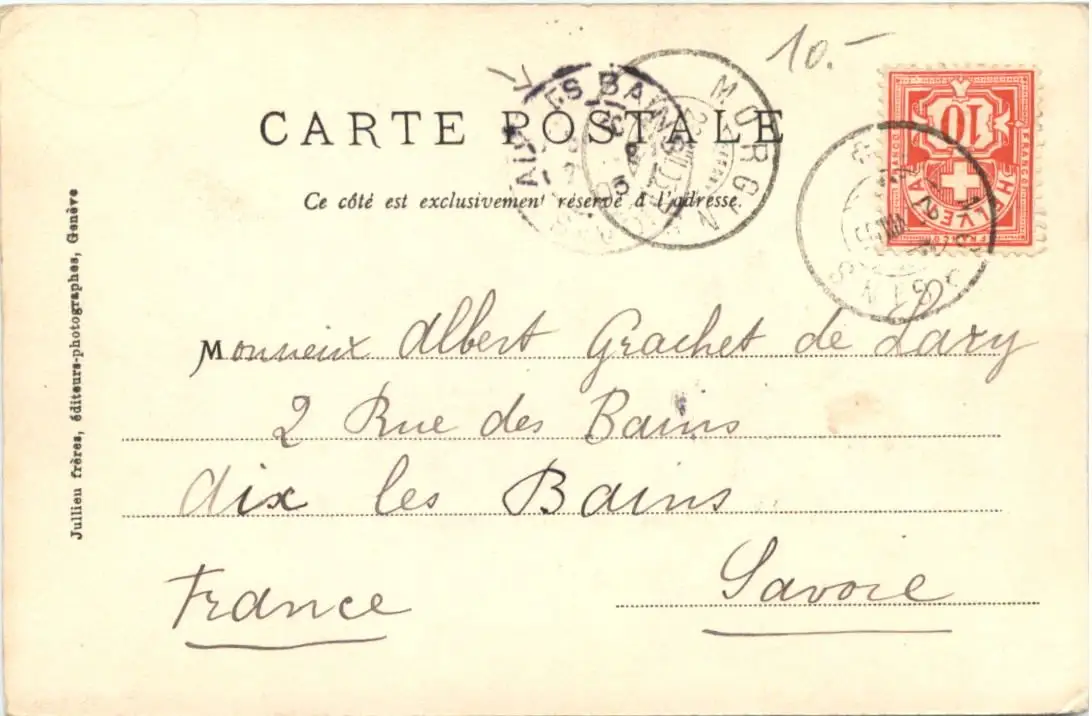 10.-
CARTE POSTALE
Ce côté est exclusivement réservé à l'adresse.
AIX LES BAINS
MORGINS
10
FRANCO
FRANCO
HELVETIA
Monsieur Albert Grachet de Lary
2 Rue des Bains
Aix les Bains
Savoie
France
Jullien frères, éditeurs-photographes, Genève